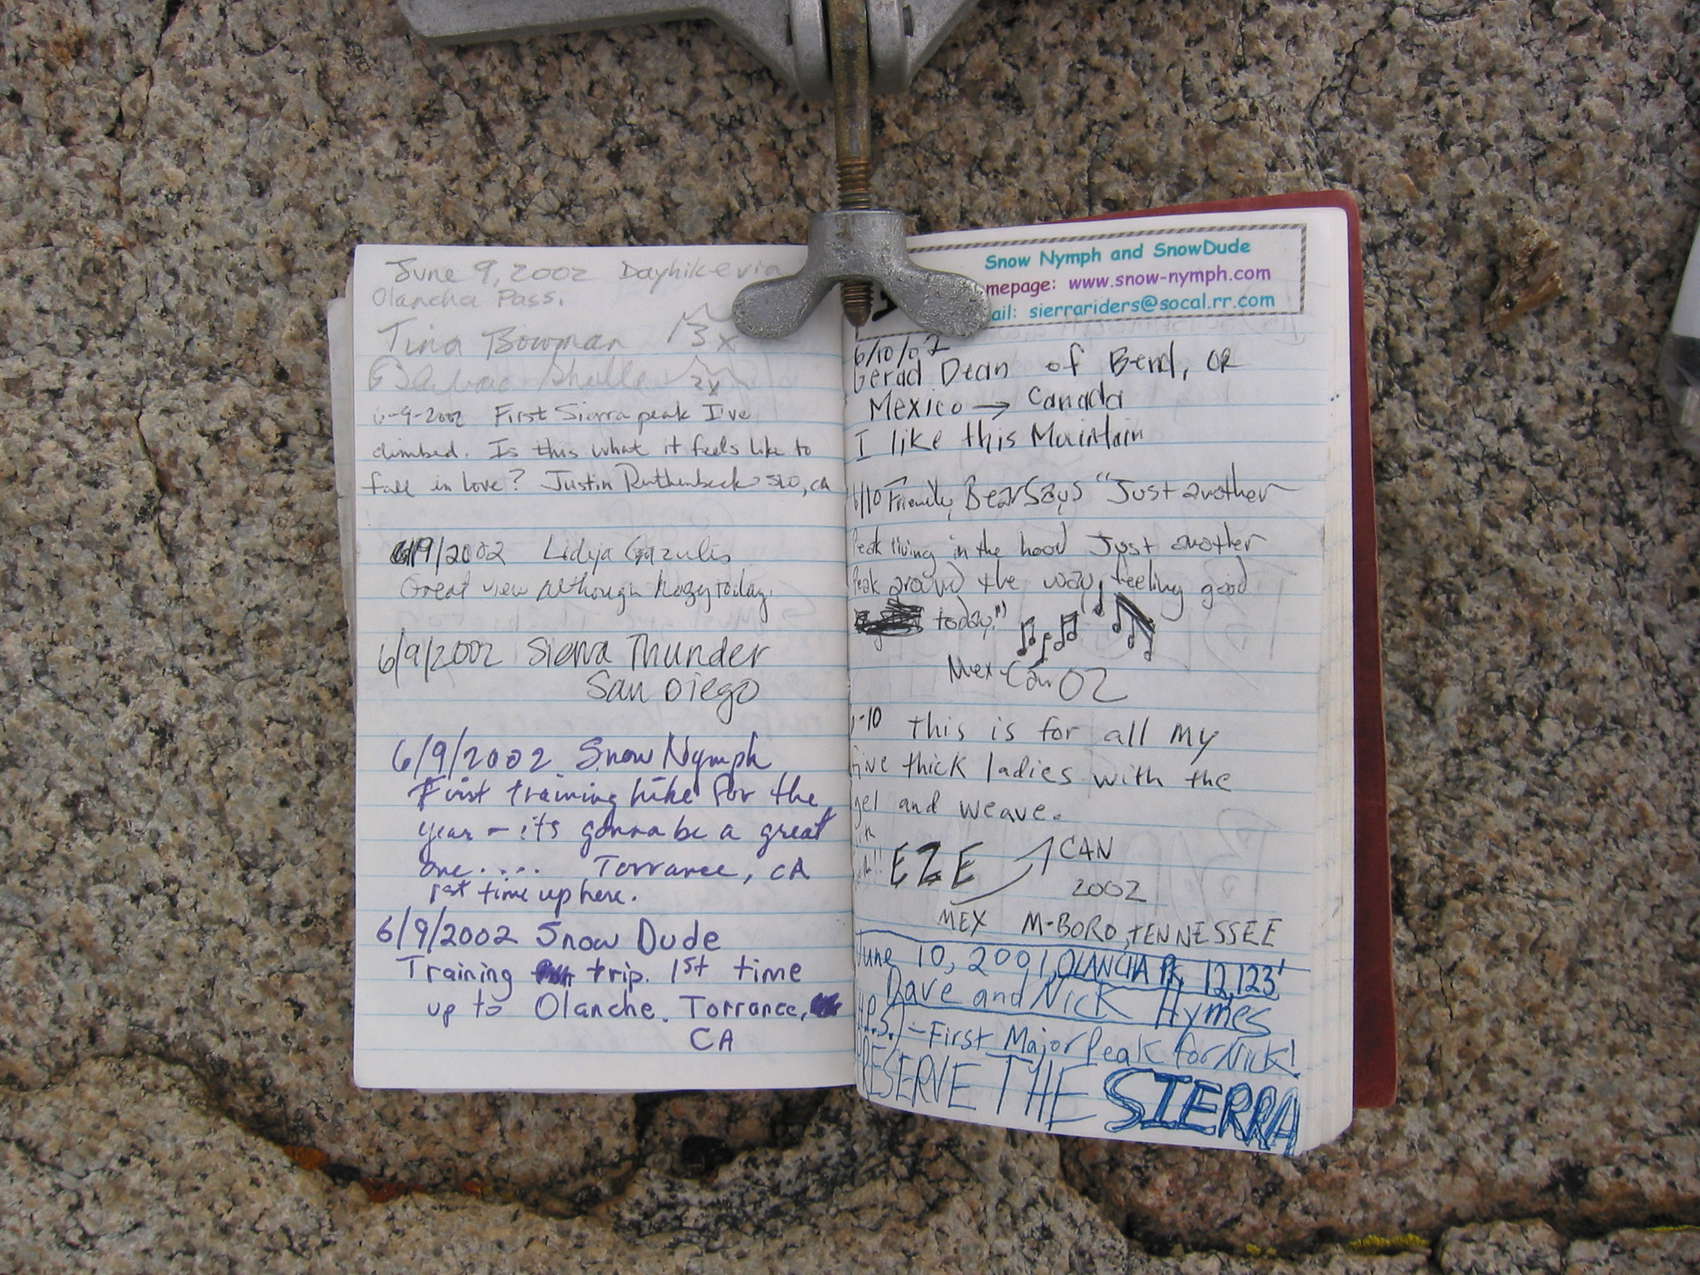 June 9, 2002 Dayhike via
Olancha Pass.
Tina Bowman 13x
2x
6-9-2002 First Sierra peak I've
climbed. Is this what it feels like to
fall in love? Justin Ruthenbeck SLO, CA
6/9/2002 Lidya Gazulis
Great view although hazy today.
6/9/2002 Sierra Thunder
San Diego
6/9/2002 Snow Nymph
First training hike for the
year - it's gonna be a great
one..... Torrance, CA
1st time up here.
6/9/2002 Snow Dude
Training trip. 1st time
up to Olanche. Torrance,
CA
Snow Nymph and SnowDude
mepage: www.snow-nymph.com
ail: sierrariders@socal.rr.com
6/10/02
Gerad Dean of Bend, OR
Mexico → Canada
I like this Muintain
6/10 Friendly Bear Says "Just another
Peak living in the hood Just another
Peak around the way, feeling good
today"
Mex-Can 02
-10 this is for all my
five thick ladies with the
gel and weave.
EZE CAN
2002
MEX M-BORO, TENNESSEE
June 10, 2001, OLANCHA PK, 12,123'
Dave and Nick Hymes
(P.S.) - First Major Peak for Nick!
PRESERVE THE SIERRA